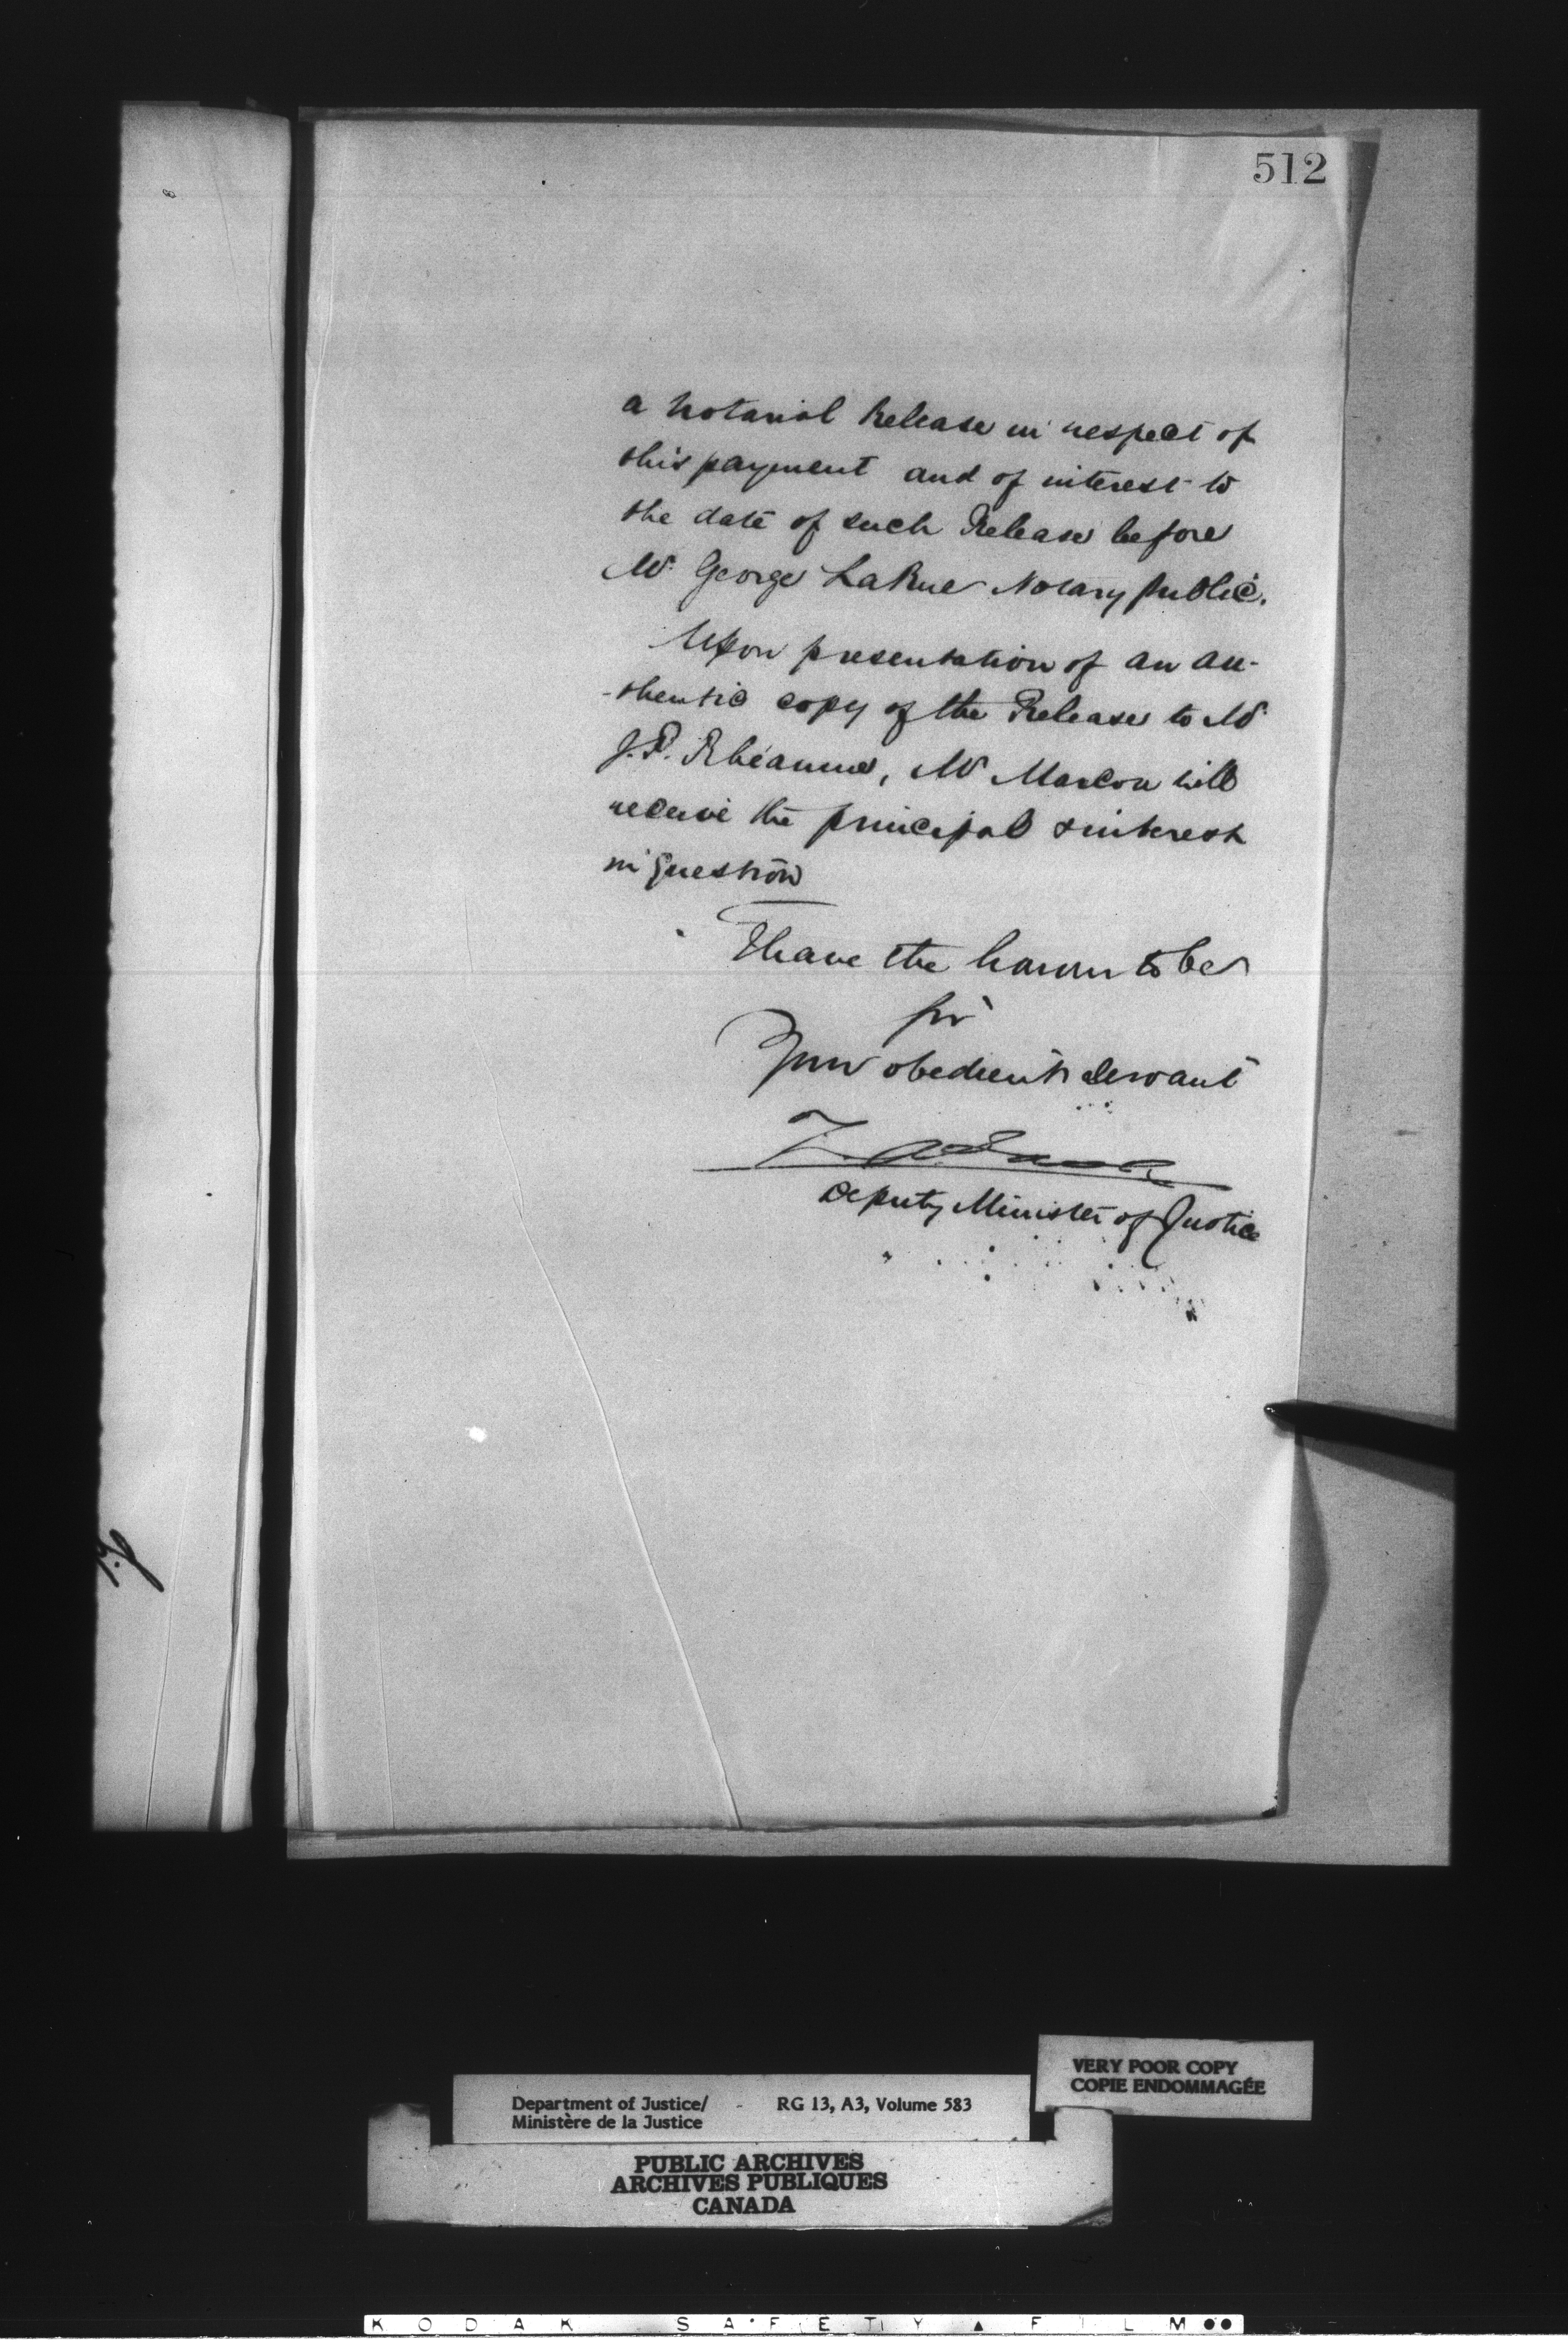 512
a Notarial Release in respect of
this payment and of interest to
the date of such Release before
Mr. George LaRue Notary Public.
Upon presentation of an au-
-thentic copy of the Release to Mr
J.P. Rhéaume, Mr Marcou will
receive the principal & interest
in question
I have the honor to be
Sir
Your obedient servant
Z. A. Lash
Deputy Minister of Justice
Department of Justice/ - RG 13, A3, Volume 583
Ministère de la Justice
VERY POOR COPY
COPIE ENDOMMAGÉE
PUBLIC ARCHIVES
ARCHIVES PUBLIQUES
CANADA
KODAK SAFETY ▲ FILM ●●